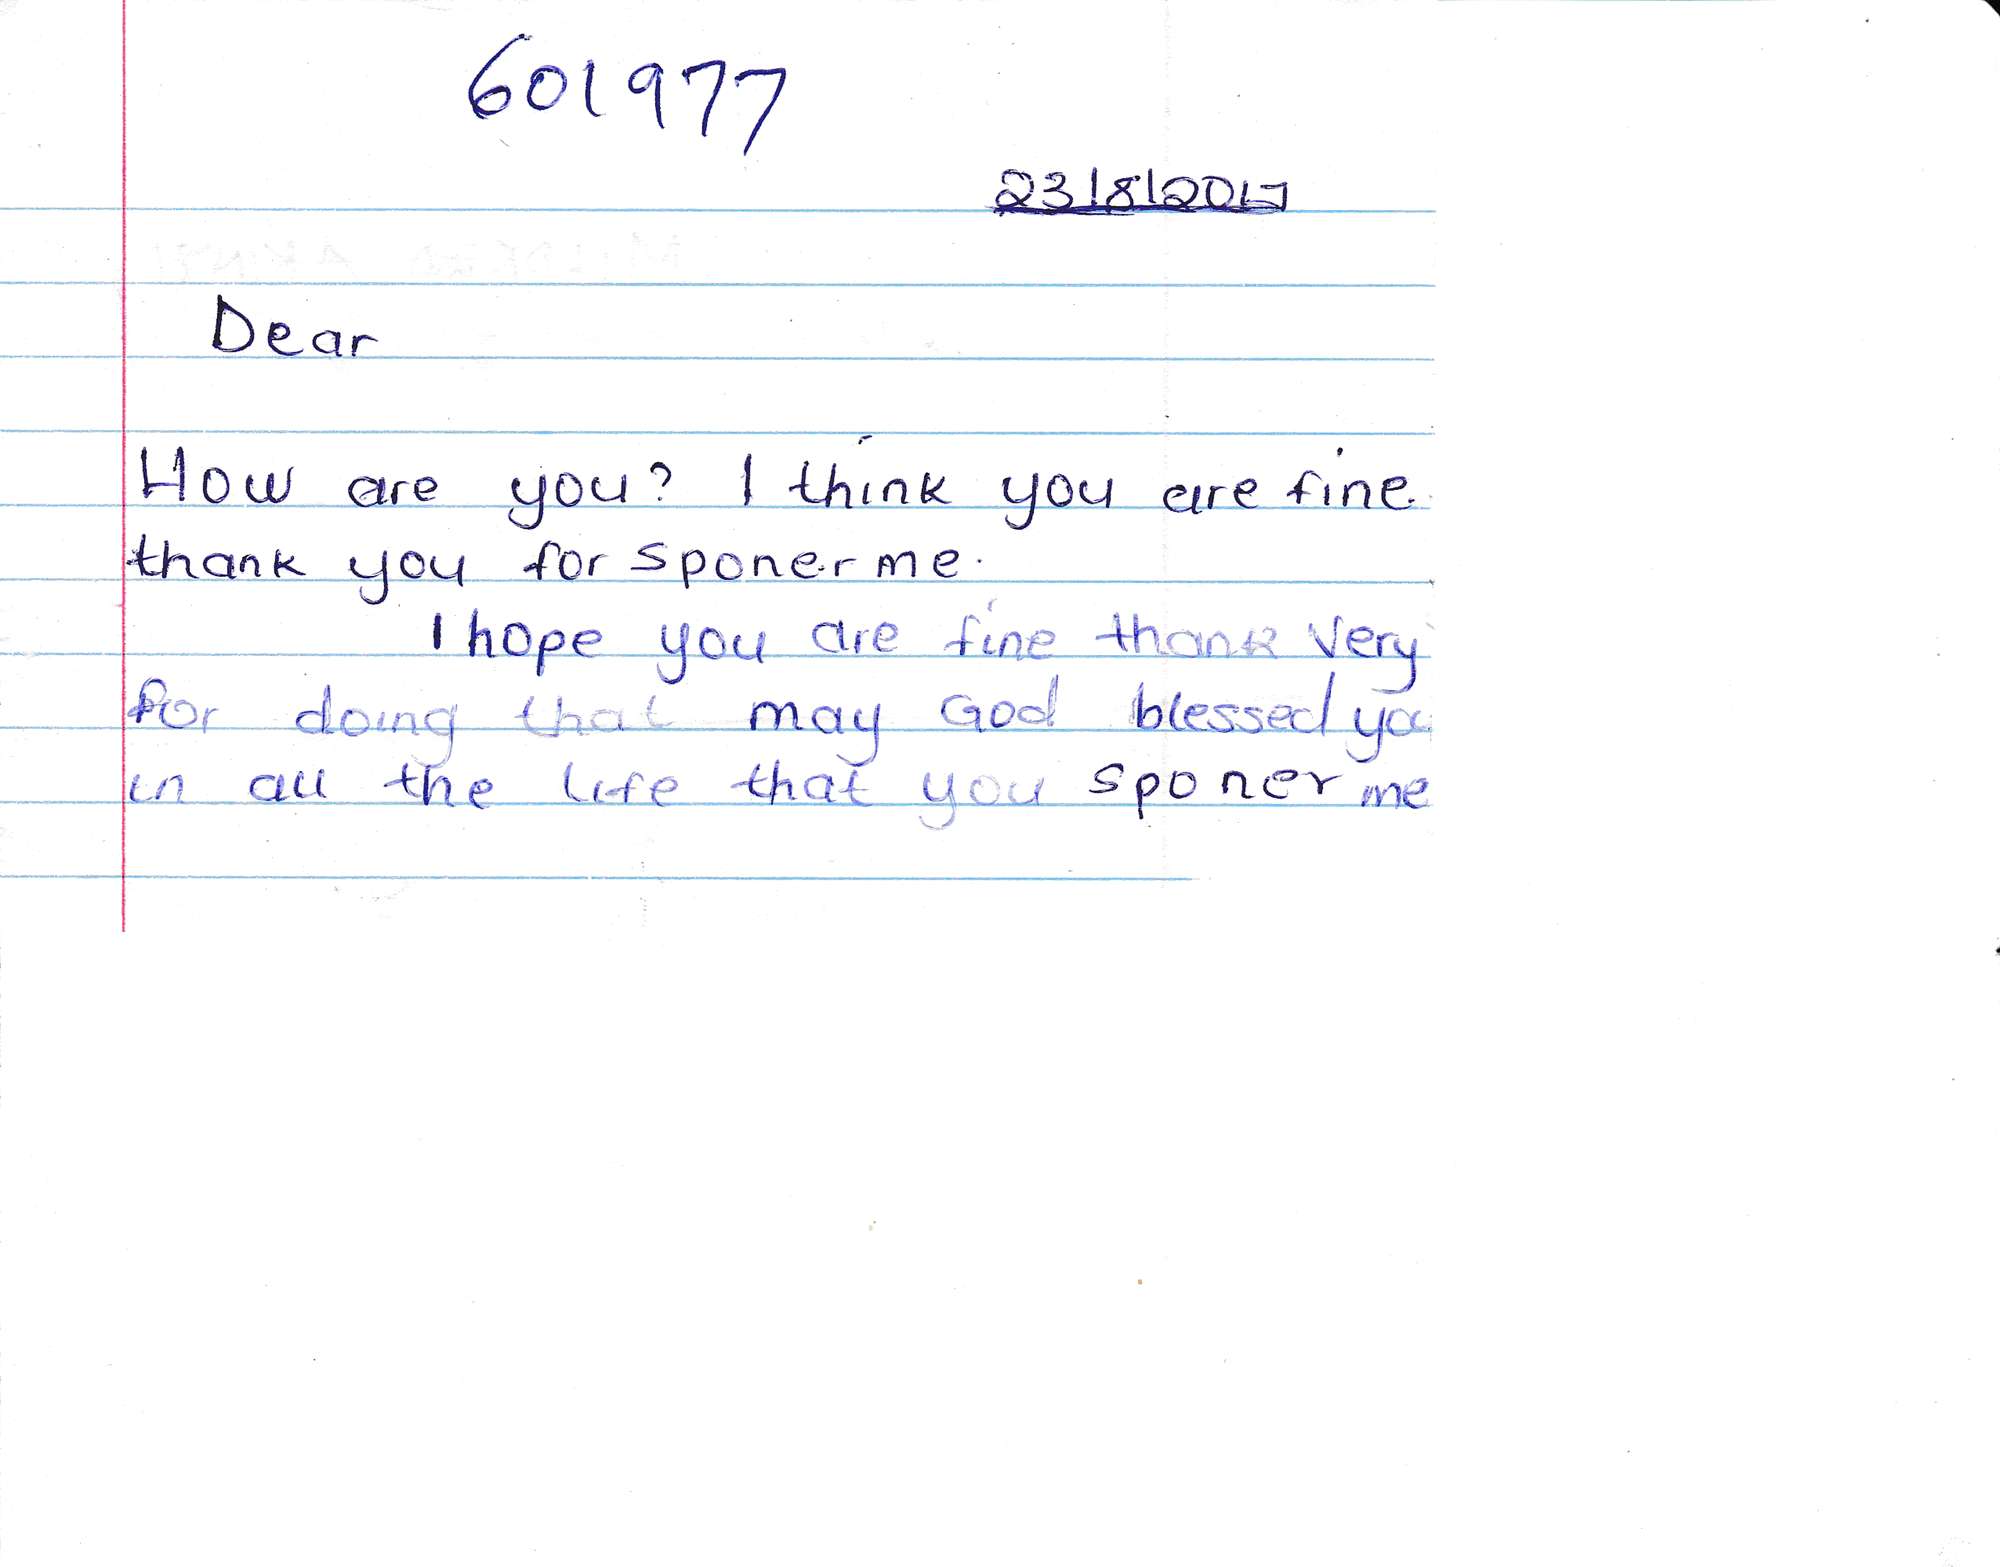 601977
23/8/2017
Dear
How are you? I think you are fine.
thank you for sponer me.
I hope you are fine thank very
for doing that may God blessed you
in all the life that you sponer me